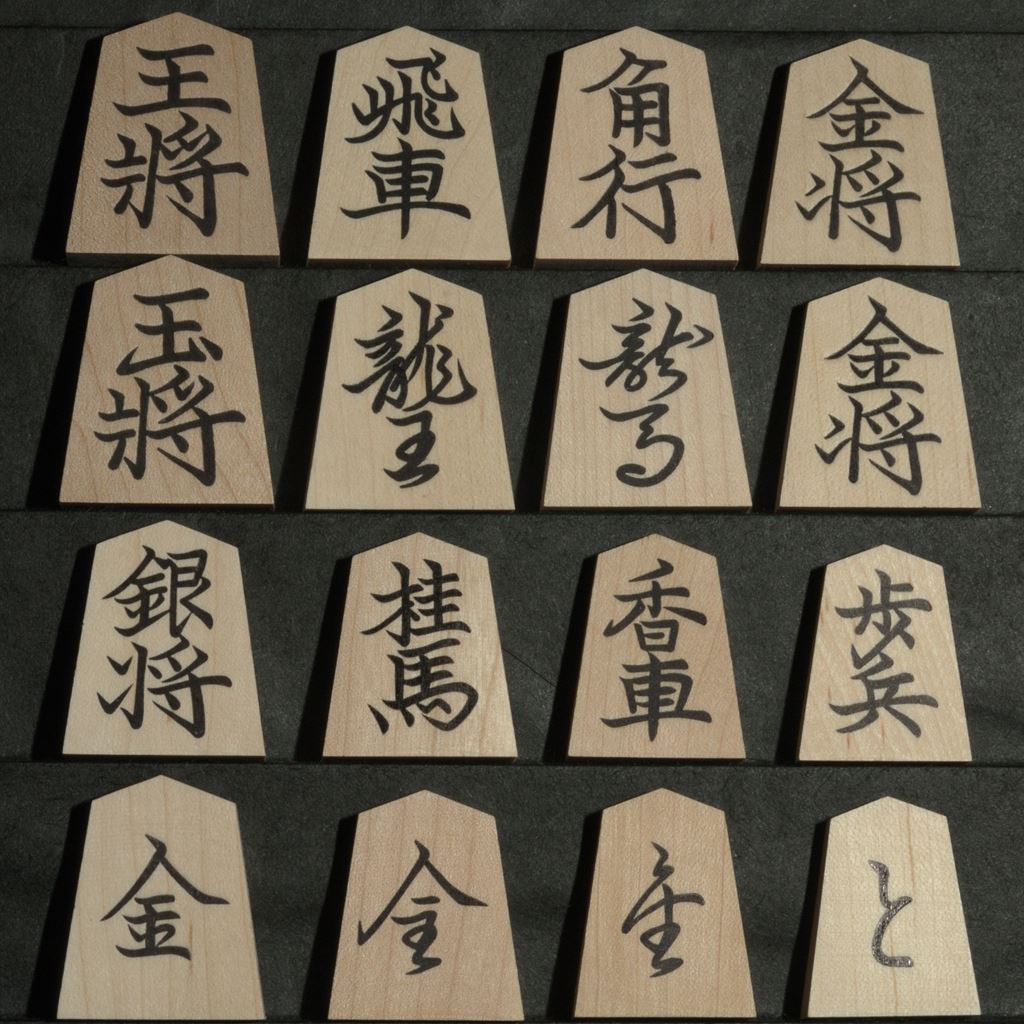 王將
飛車
角行
金将
玉將
龍王
龍馬
金将
銀将
桂馬
香車
歩兵
金
全
と